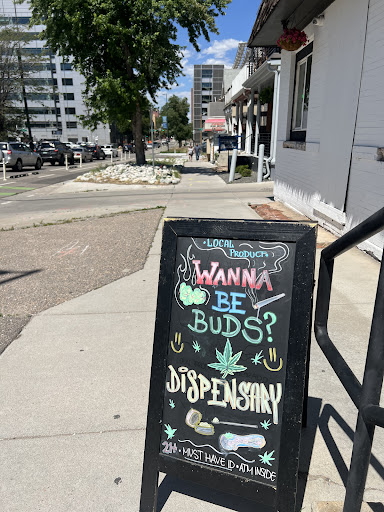 • LOCAL
PRODUCT
WANNA
BE
BUDS?
DISPENSARY
21+ • MUST HAVE ID • ATM INSIDE